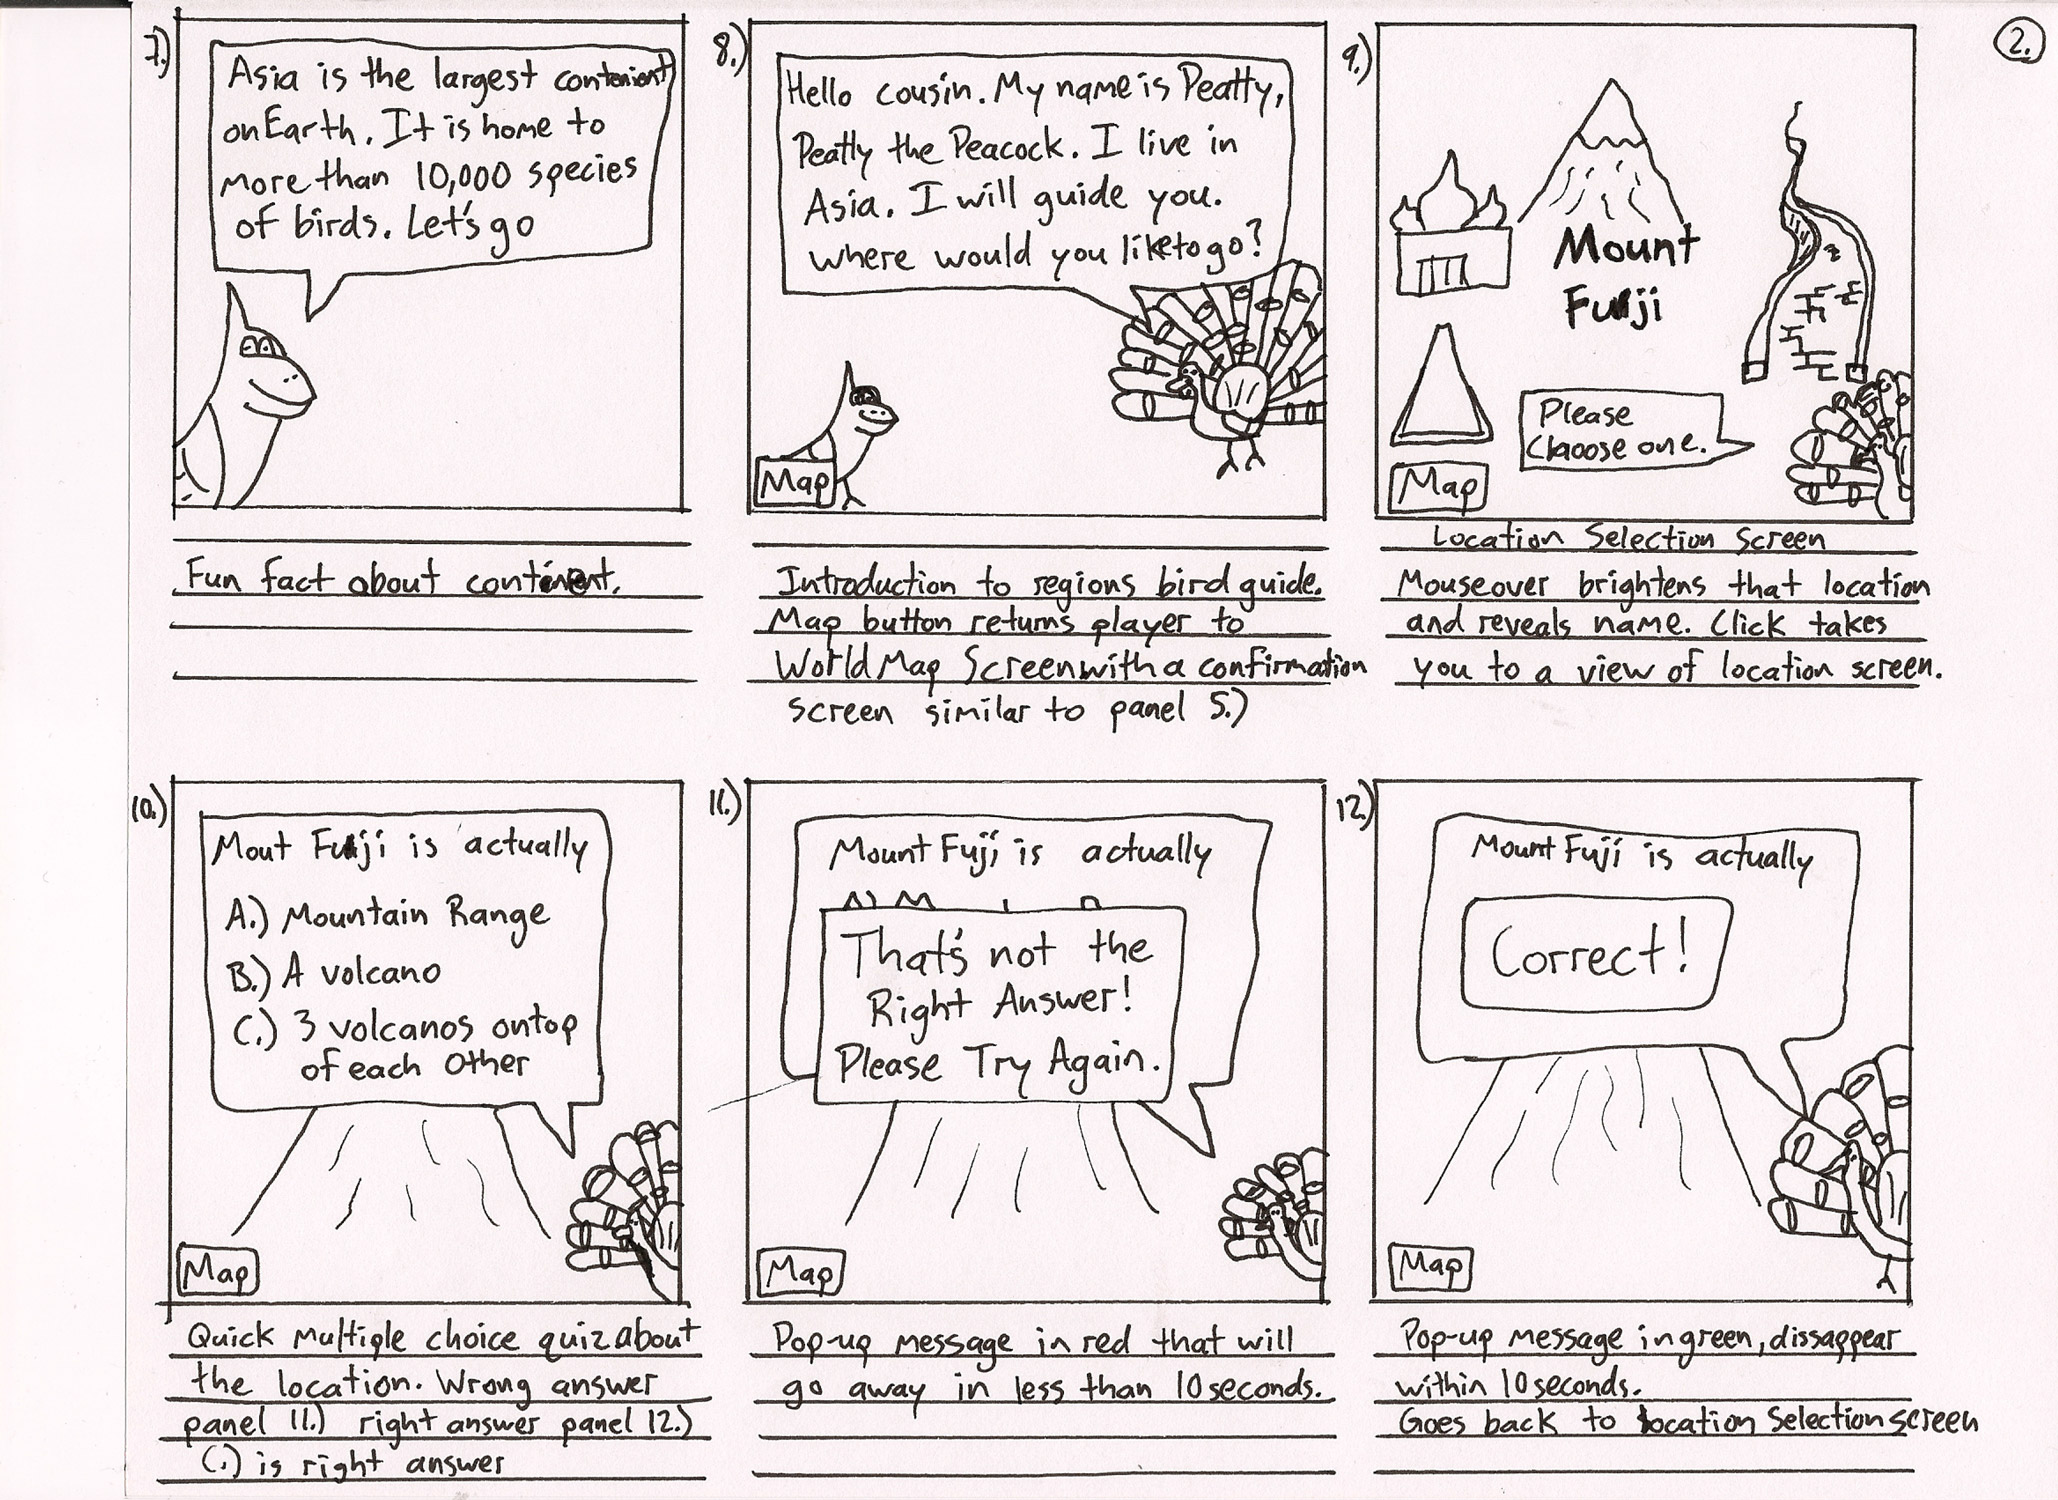 2.
7.)
Asia is the largest contenient
on Earth. It is home to
more than 10,000 species
of birds. Let's go
Fun fact about continent.
8.)
Hello cousin. My name is Peatty,
Peatty the Peacock. I live in
Asia. I will guide you.
where would you like to go?
Map
Introduction to regions bird guide.
Map button returns player to
World Map Screen with a confirmation
screen similar to panel 5.)
9.)
Mount
Fuji
Please
Choose one.
Map
Location Selection Screen
Mouseover brightens that location
and reveals name. Click takes
you to a view of location screen.
10.)
Mout Fuji is actually
A.) Mountain Range
B.) A volcano
C.) 3 volcanos ontop
of each other
Map
Quick multiple choice quiz about
the location. Wrong answer
panel 11.) right answer panel 12.)
C.) is right answer
11.)
Mount Fuji is actually
That's not the
Right Answer!
Please Try Again.
Map
Pop-up message in red that will
go away in less than 10 seconds.
12.)
Mount Fuji is actually
Correct!
Map
Pop-up message in green, dissappear
within 10 seconds.
Goes back to location Selection screen